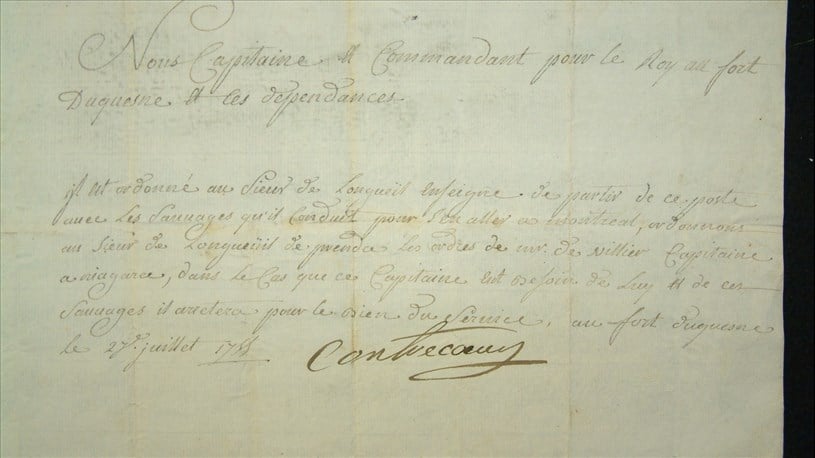 Nous Capitaine et Commandant pour le Roy au fort
Duquesne et ces dependances
Il est ordonné au Sieur de Longueüil Enseigne de partir de ce poste
avec Les Sauvages qu'il Conduit pour s'en aller a montreal, ordonnons
au Sieur de Longueüil de prendre Les ordres de mr. de Villier Capitaine
a niagara, dans Le Cas que ce Capitaine eut Besoin de Luy et de ces
Sauvages il arretera pour le Bien du Service, au fort duquesne
le 27e. juillet 1755
Contrecoeur